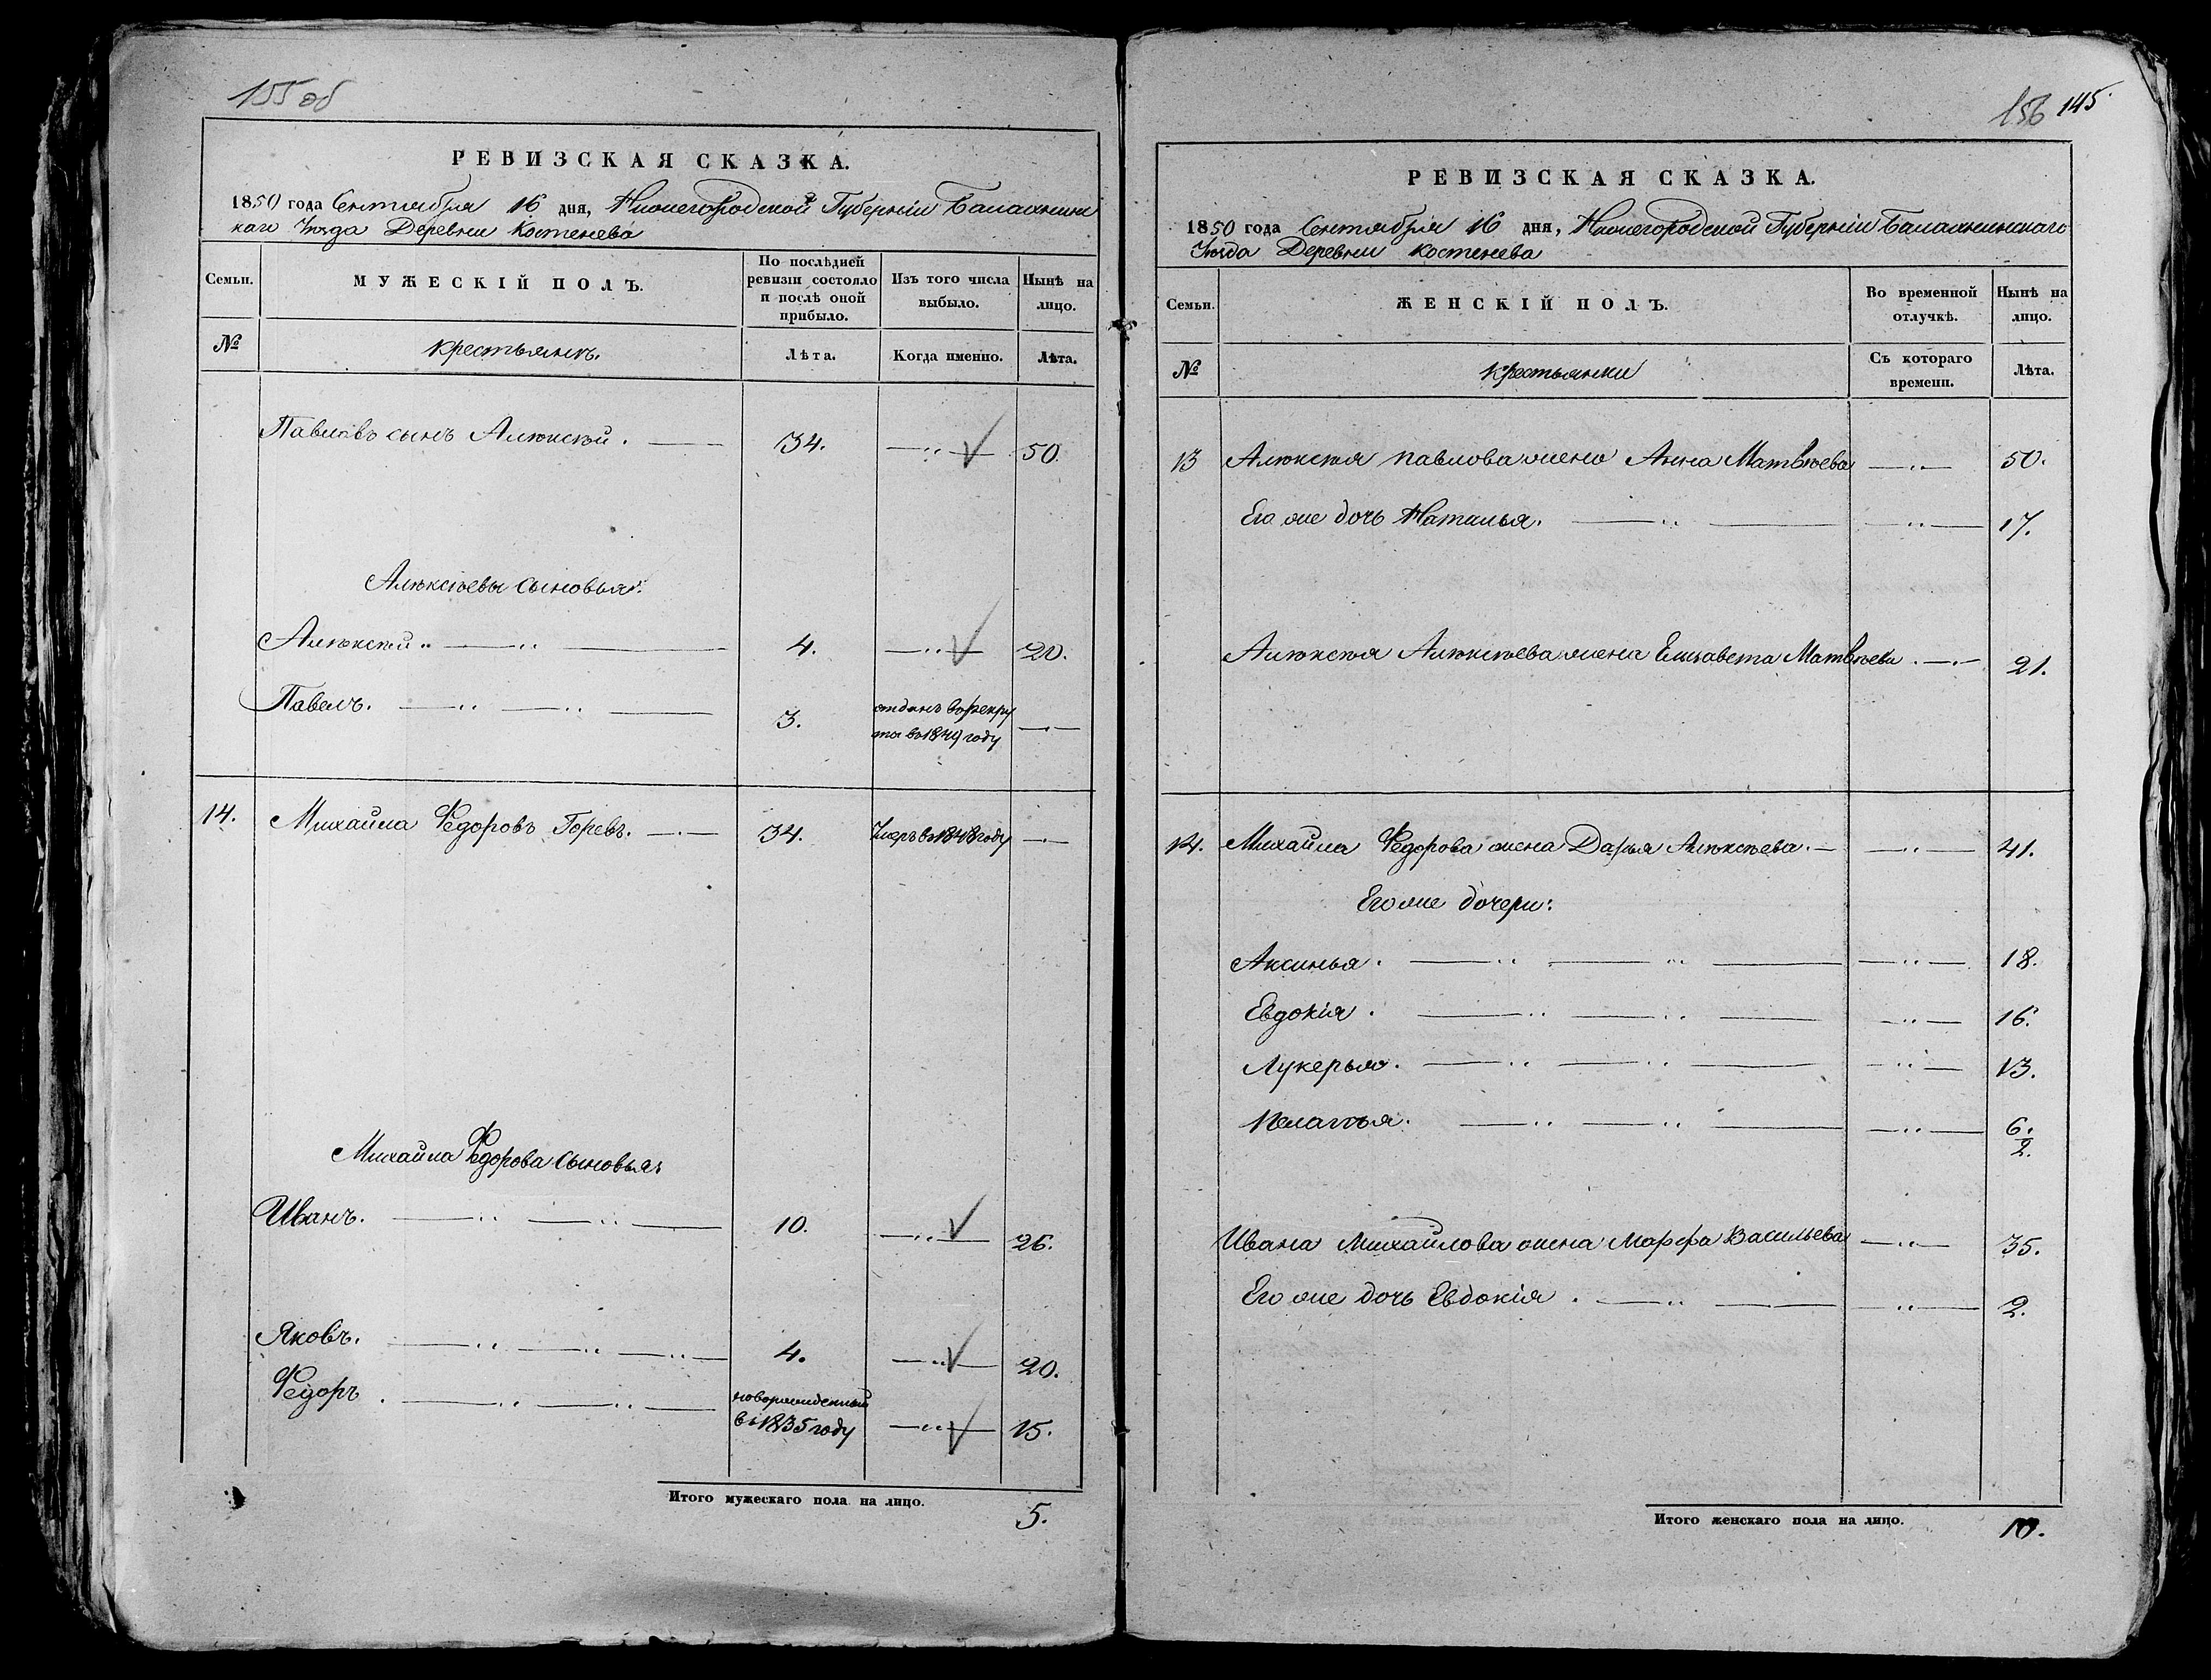 155 об
РЕВИЗСКАЯ СКАЗКА.
1850 года Сентября 16 дня, Нижегородской Губерніи Балахнинс
каго Уѣзда Деревни Костенева
Семьи.
МУЖЕСКІЙ ПОЛЪ.
По послѣдней ревизіи состояло и послѣ оной прибыло.
Изъ того числа выбыло.
Нынѣ на лицо.
№
Крестьянъ.
Лѣта.
Когда именно.
Лѣта.
Павловъ сынъ Алѣксѣй. 34. 50.
Алѣксѣевы сыновья:
Алѣксѣй 4. 20.
Павелъ. 3. отданъ в рекру
та в 1849 году
14. Михайла Федоровъ Горевъ. 34. Умеръ в 1848 году
Михайла Федорова сыновья:
Иванъ. 10. 26.
Яковъ. 4. 20.
Федоръ. новорожденный
в 1835 году 15.
Итого мужескаго пола на лицо. 5.
156 145
РЕВИЗСКАЯ СКАЗКА.
1850 года Сентября 16 дня, Нижегородской Губерніи Балахнинскаго
Уѣзда Деревни Костенева
Семьи.
ЖЕНСКІЙ ПОЛЪ.
Во временной отлучкѣ.
Нынѣ на лицо.
№
Крестьянки
Съ котораго времени.
Лѣта.
13 Алѣксѣя Павлова жена Анна Матвѣева 50.
Его же дочь Наталья. 17.
Алѣксѣя Алѣксѣева жена Елизавета Матвѣева. 21.
14. Михайла Федорова жена Дарья Алѣксѣева. 41.
Его же дочери:
Аксинья. 18.
Евдокія. 16.
Лукерья. 13.
Пелагѣя. 6.
2.
Ивана Михайлова жена Марфа Васильева 35.
Его же дочь Евдокія. 2.
Итого женскаго пола на лицо. 10.